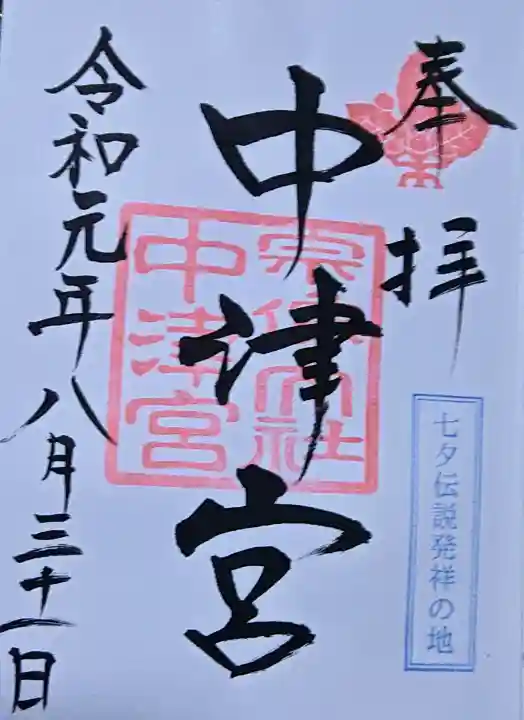 奉拝
七夕伝説発祥の地
中津宮
宗像大社
中津宮
令和元年八月三十一日